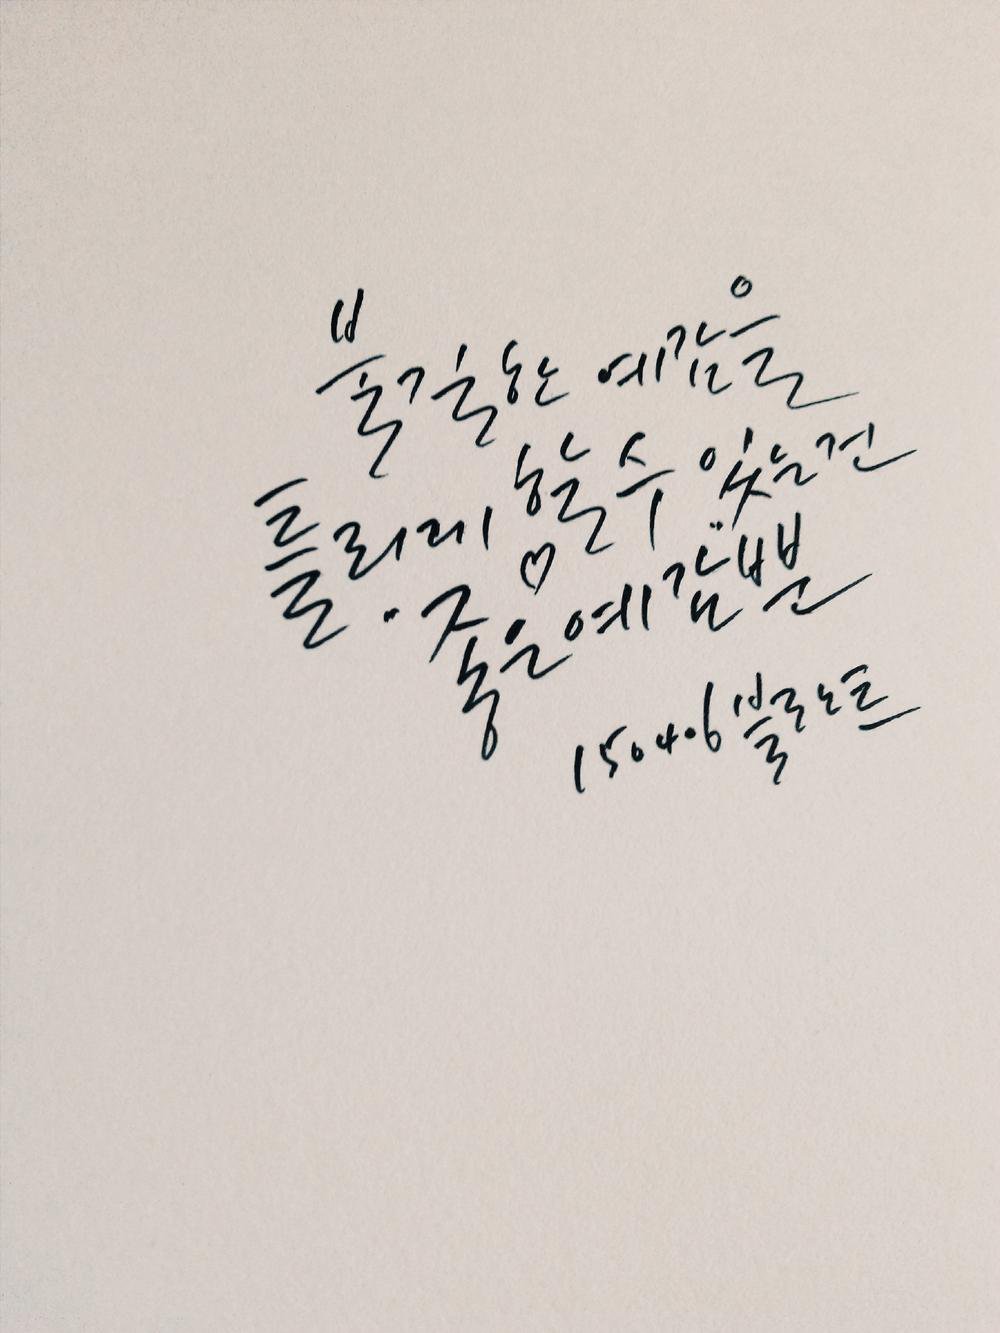 불길한 예감을
틀리게 할 수 있는 건
좋은 예감뿐
150406 블루노트